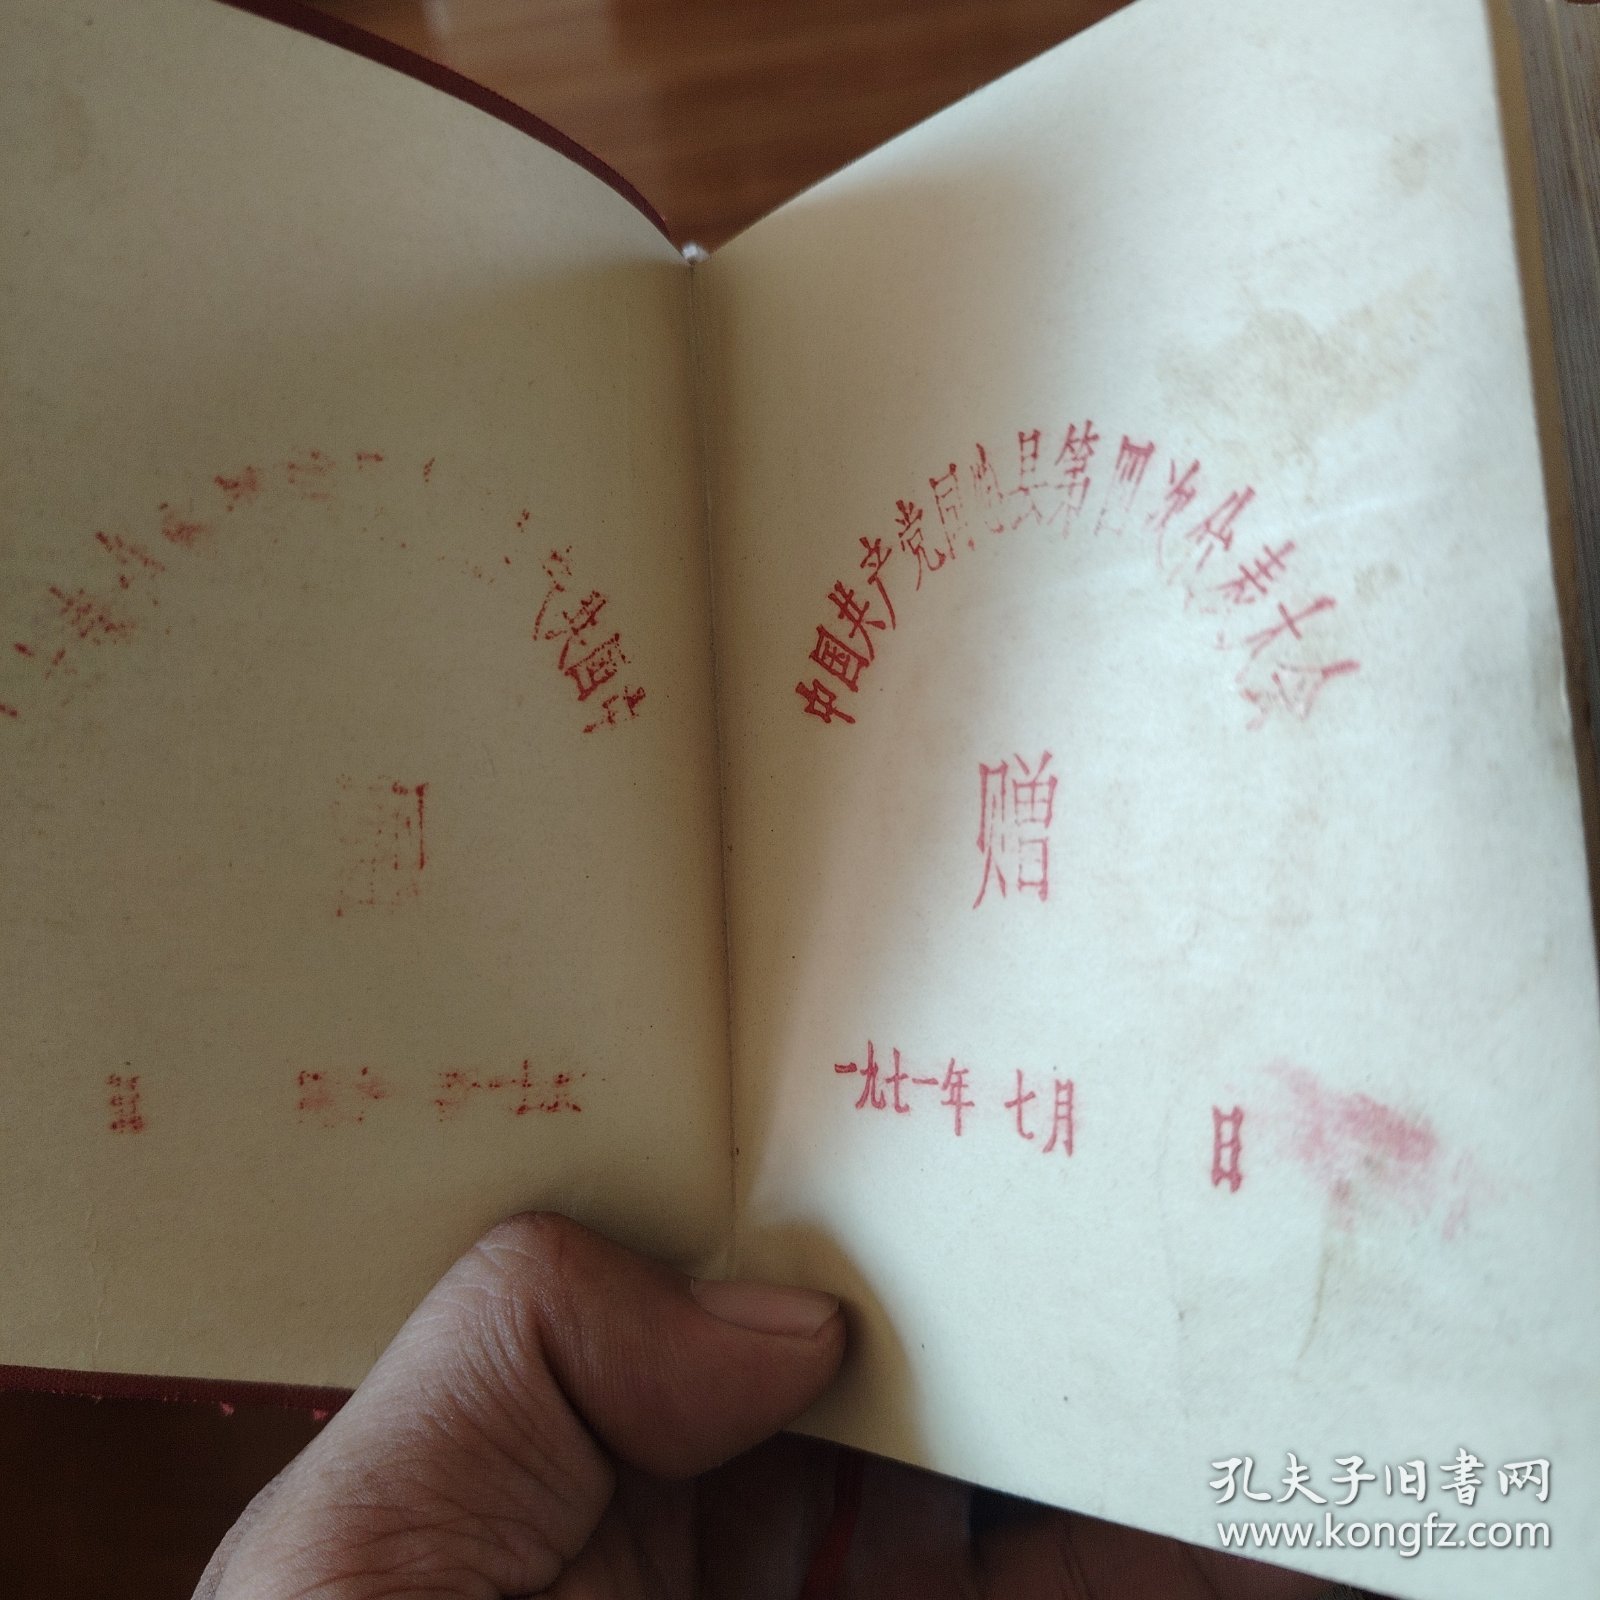 中国共产党县第四次代表大会
赠
一九七一年 七月 日
孔夫子旧书网
www.kongfz.com